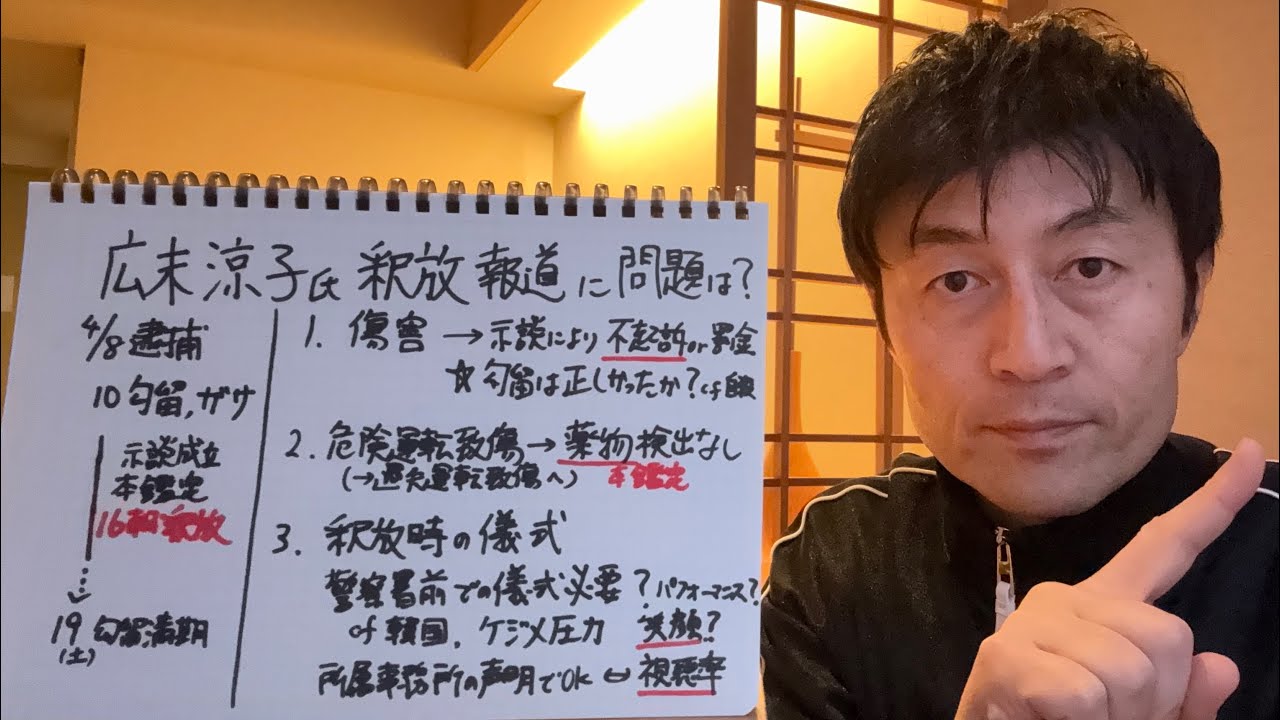 広末涼子氏 釈放報道に問題は?
4/8 逮捕
10 勾留,ガサ
示談成立
本鑑定
16朝 釈放
19 勾留満期
(土)
1. 傷害 → 示談により 不起訴or罰金
☆ 勾留は正しかったか? cf
2. 危険運転致傷→薬物検出なし
(→過失運転致傷へ) 本鑑定
3. 釈放時の儀式
警察署前での儀式必要?パフォーマンス?
cf 韓国, ケジメ圧力 笑顔?
所属事務所の声明でOK ⇔ 視聴率